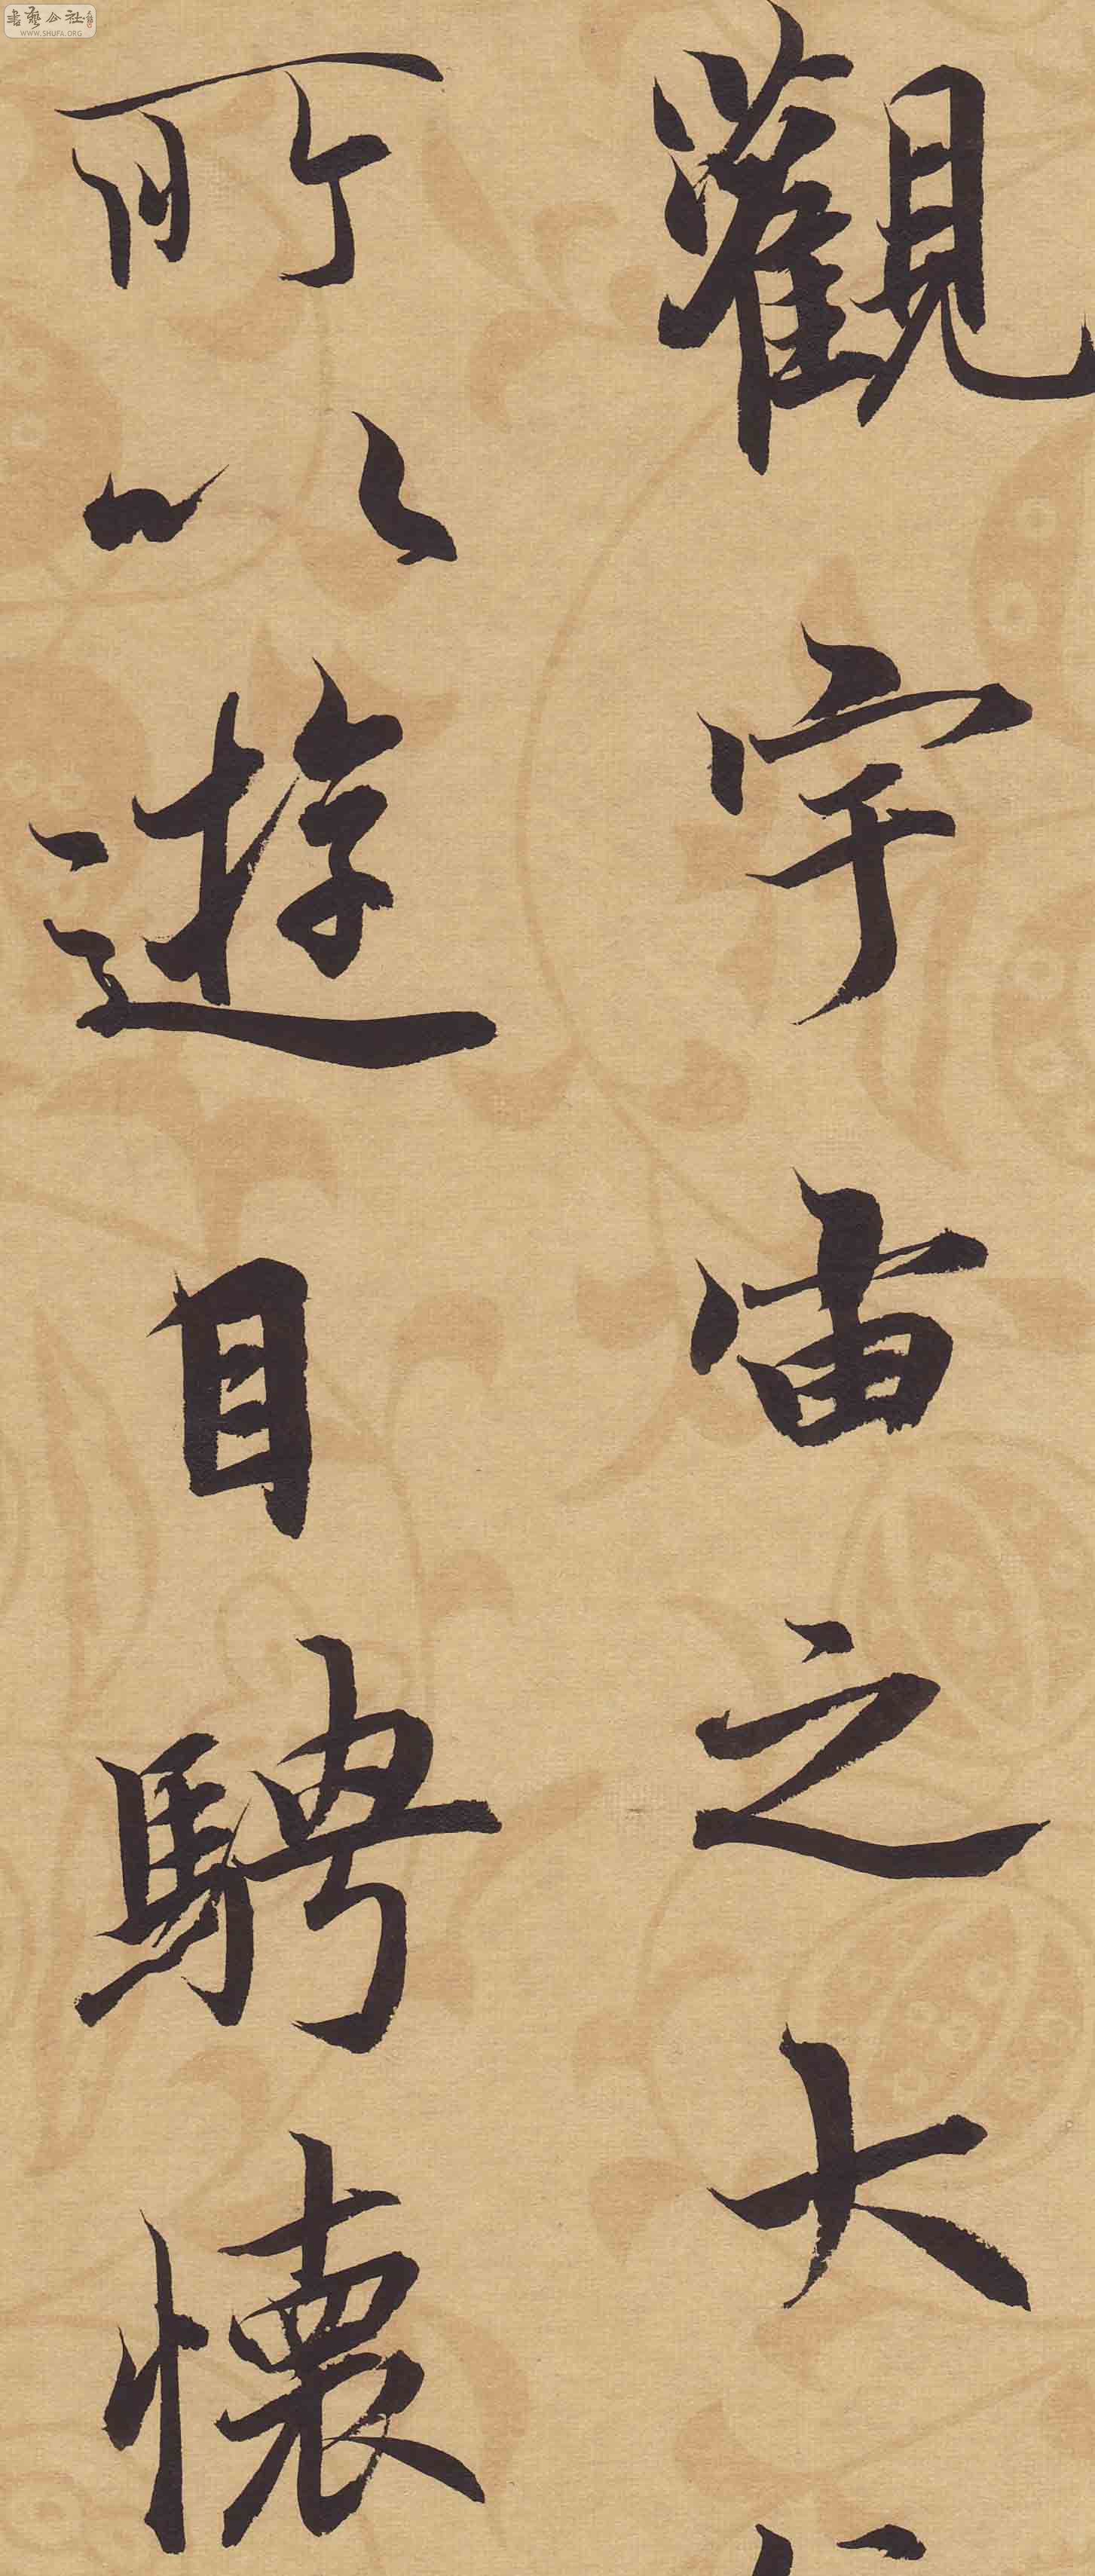 觀宇宙之大
所以遊目騁懷
書藝公社
WWW.SHUFA.ORG